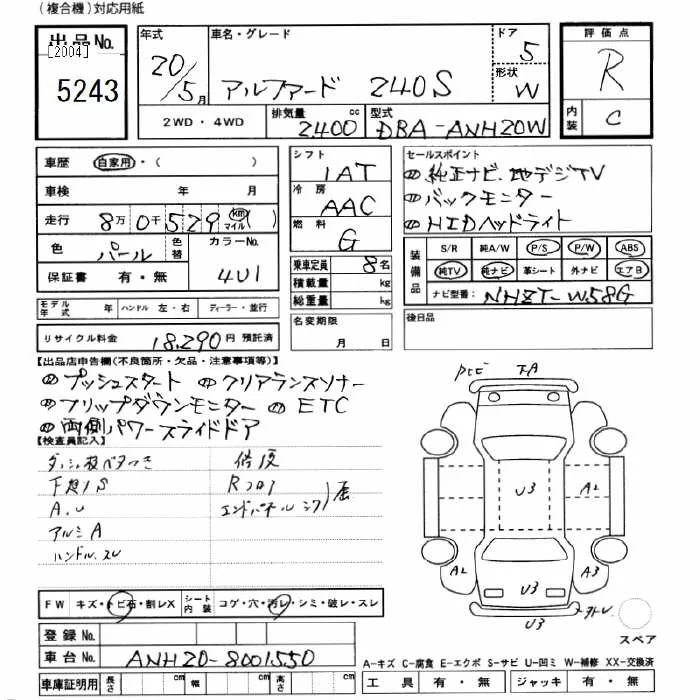 (複合機)対応用紙
出品No.
[2004]
5243
年式
20/5月
車名・グレード
アルファード 240S
ドア
5
形状
W
2WD・4WD
排気量
2400 cc
型式
DBA-ANH20W
評価点
R
内装
C
車歴 自家用・( )
車検 年 月
走行 8万0千529 km マイル ( )
色 パール 色替
カラーNo.
4U1
保証書 有・無
シフト
IAT
冷房
AAC
燃料
G
乗車定員 8名
積載量 kg
総重量 kg
セールスポイント
純正ナビ.地デジTV
バックモニター
HIDヘッドライト
装備品
S/R 純A/W P/S P/W ABS
純TV 純ナビ 革シート 外ナビ エアB
ナビ型番: NHZT-W58G
モデル年式 年 ハンドル 左・右 ディーラー・並行
リサイクル料金 18,290円 預託済
名変期限
月 日
後日品
【出品店申告欄(不良箇所・欠品・注意事項等)】
プッシュスタート クリアランスソナー
フリップダウンモニター ETC
両側パワースライドドア
【検査員記入】
修復
下廻りS
Rフロア
A.U
エンドパネル
アルミA
ハンドル.スレ
A
U3
A2
A2
A3
U3
U3
スペア
FW キズ・トビ石・割レX シート内装 コゲ・穴・汚レ・シミ・破レ・スレ
登録No.
車台No. ANH20-8001550
車庫証明用 長さ cm 幅 cm 高さ cm
A-キズ C-腐食 E-エクボ S-サビ U-凹ミ W-補修 XX-交換済
工具 有・無 ジャッキ 有・無